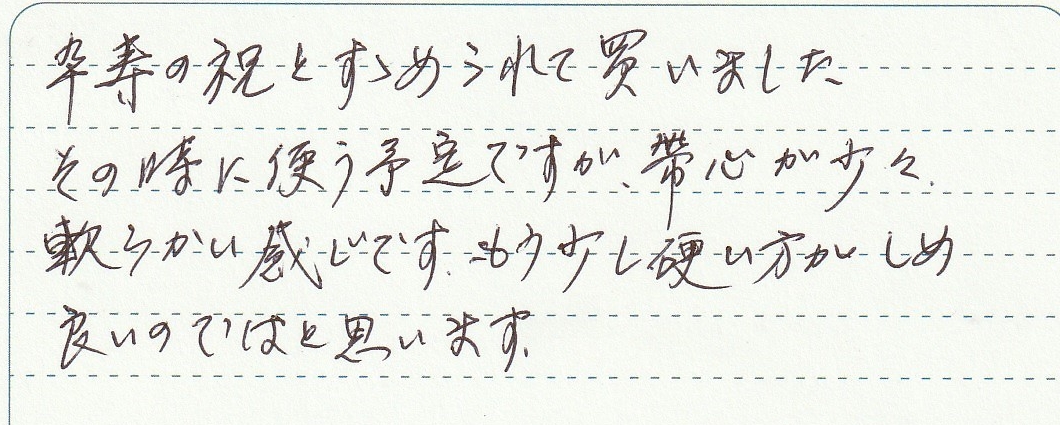 卒寿の祝とすゝめられて買いました
その時に使う予定ですが、帯心が少々
軟らかい感じです。もう少し硬い方がしめ
良いのではと思います。